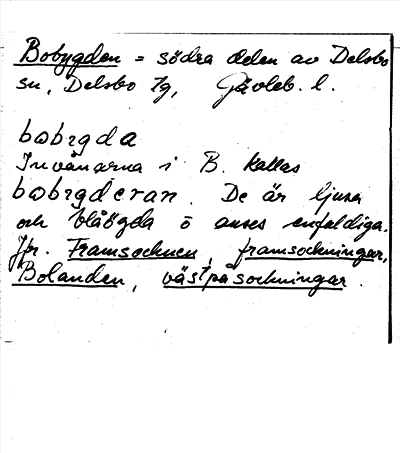 Bobygden = södra delen av Delsbo
sn, Delsbo tg, Gävleb. l.
bobygda
Invånarna i B. kallas
bobygderan. De är ljusa
och blåögda o anses enfaldiga.
Jfr. Framsocknen, framsockningar,
Bolanden, västpåsockningar.